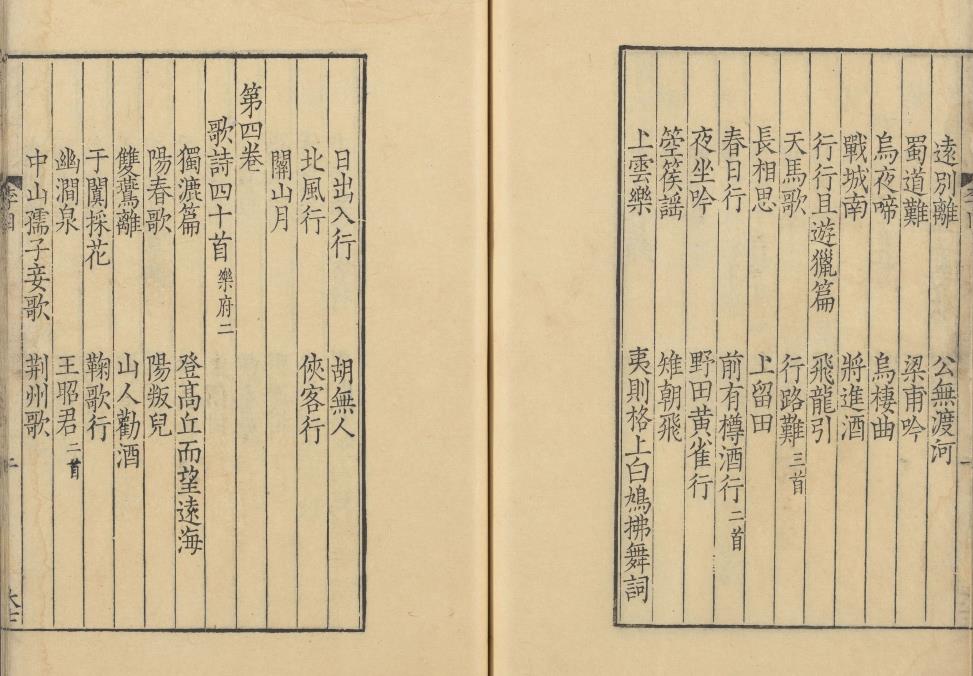 遠別離　公無渡河
蜀道難　梁甫吟
烏夜啼　烏棲曲
戰城南　將進酒
行行且遊獵篇　飛龍引
天馬歌　行路難三首
長相思　上留田
春日行　前有樽酒行二首
夜坐吟　野田黄雀行
箜篌謡　雉朝飛
上雲樂　夷則格上白鳩拂舞詞
日出入行　胡無人
北風行　俠客行
關山月
第四卷
歌詩四十首樂府二
獨漉篇　登髙丘而望遠海
陽春歌　陽叛兒
雙鷰離　山人勸酒
于闐採花　鞠歌行
幽澗泉　王昭君二首
中山孺子妾歌　荆州歌